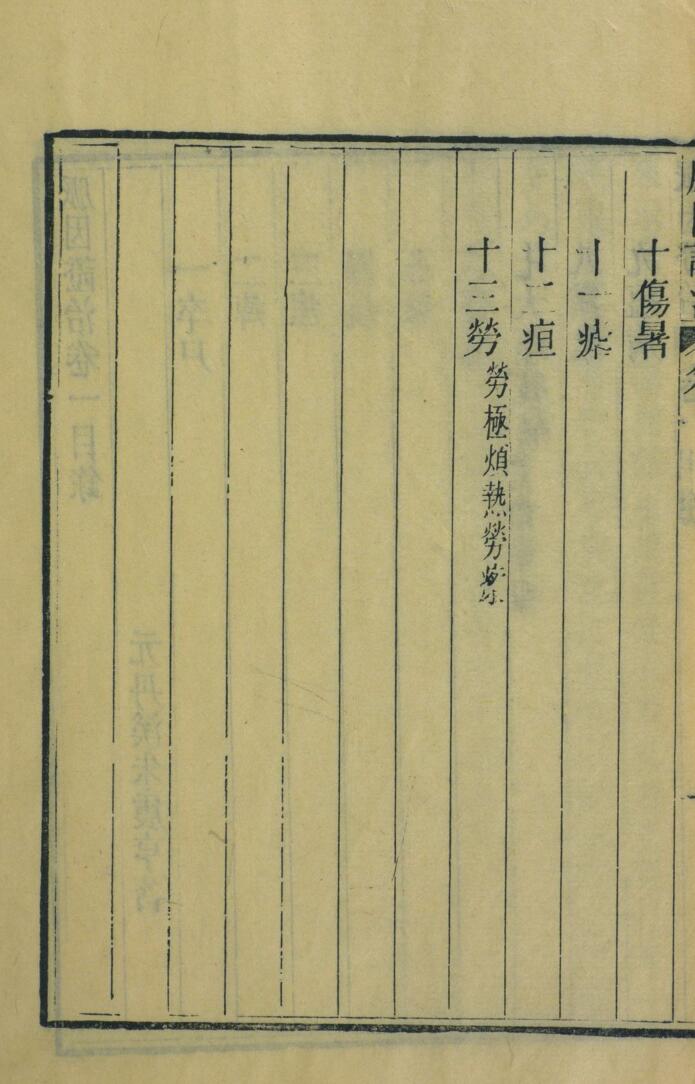 十傷暑
十一
十二疸
十三勞 勞極煩熱勞瘵